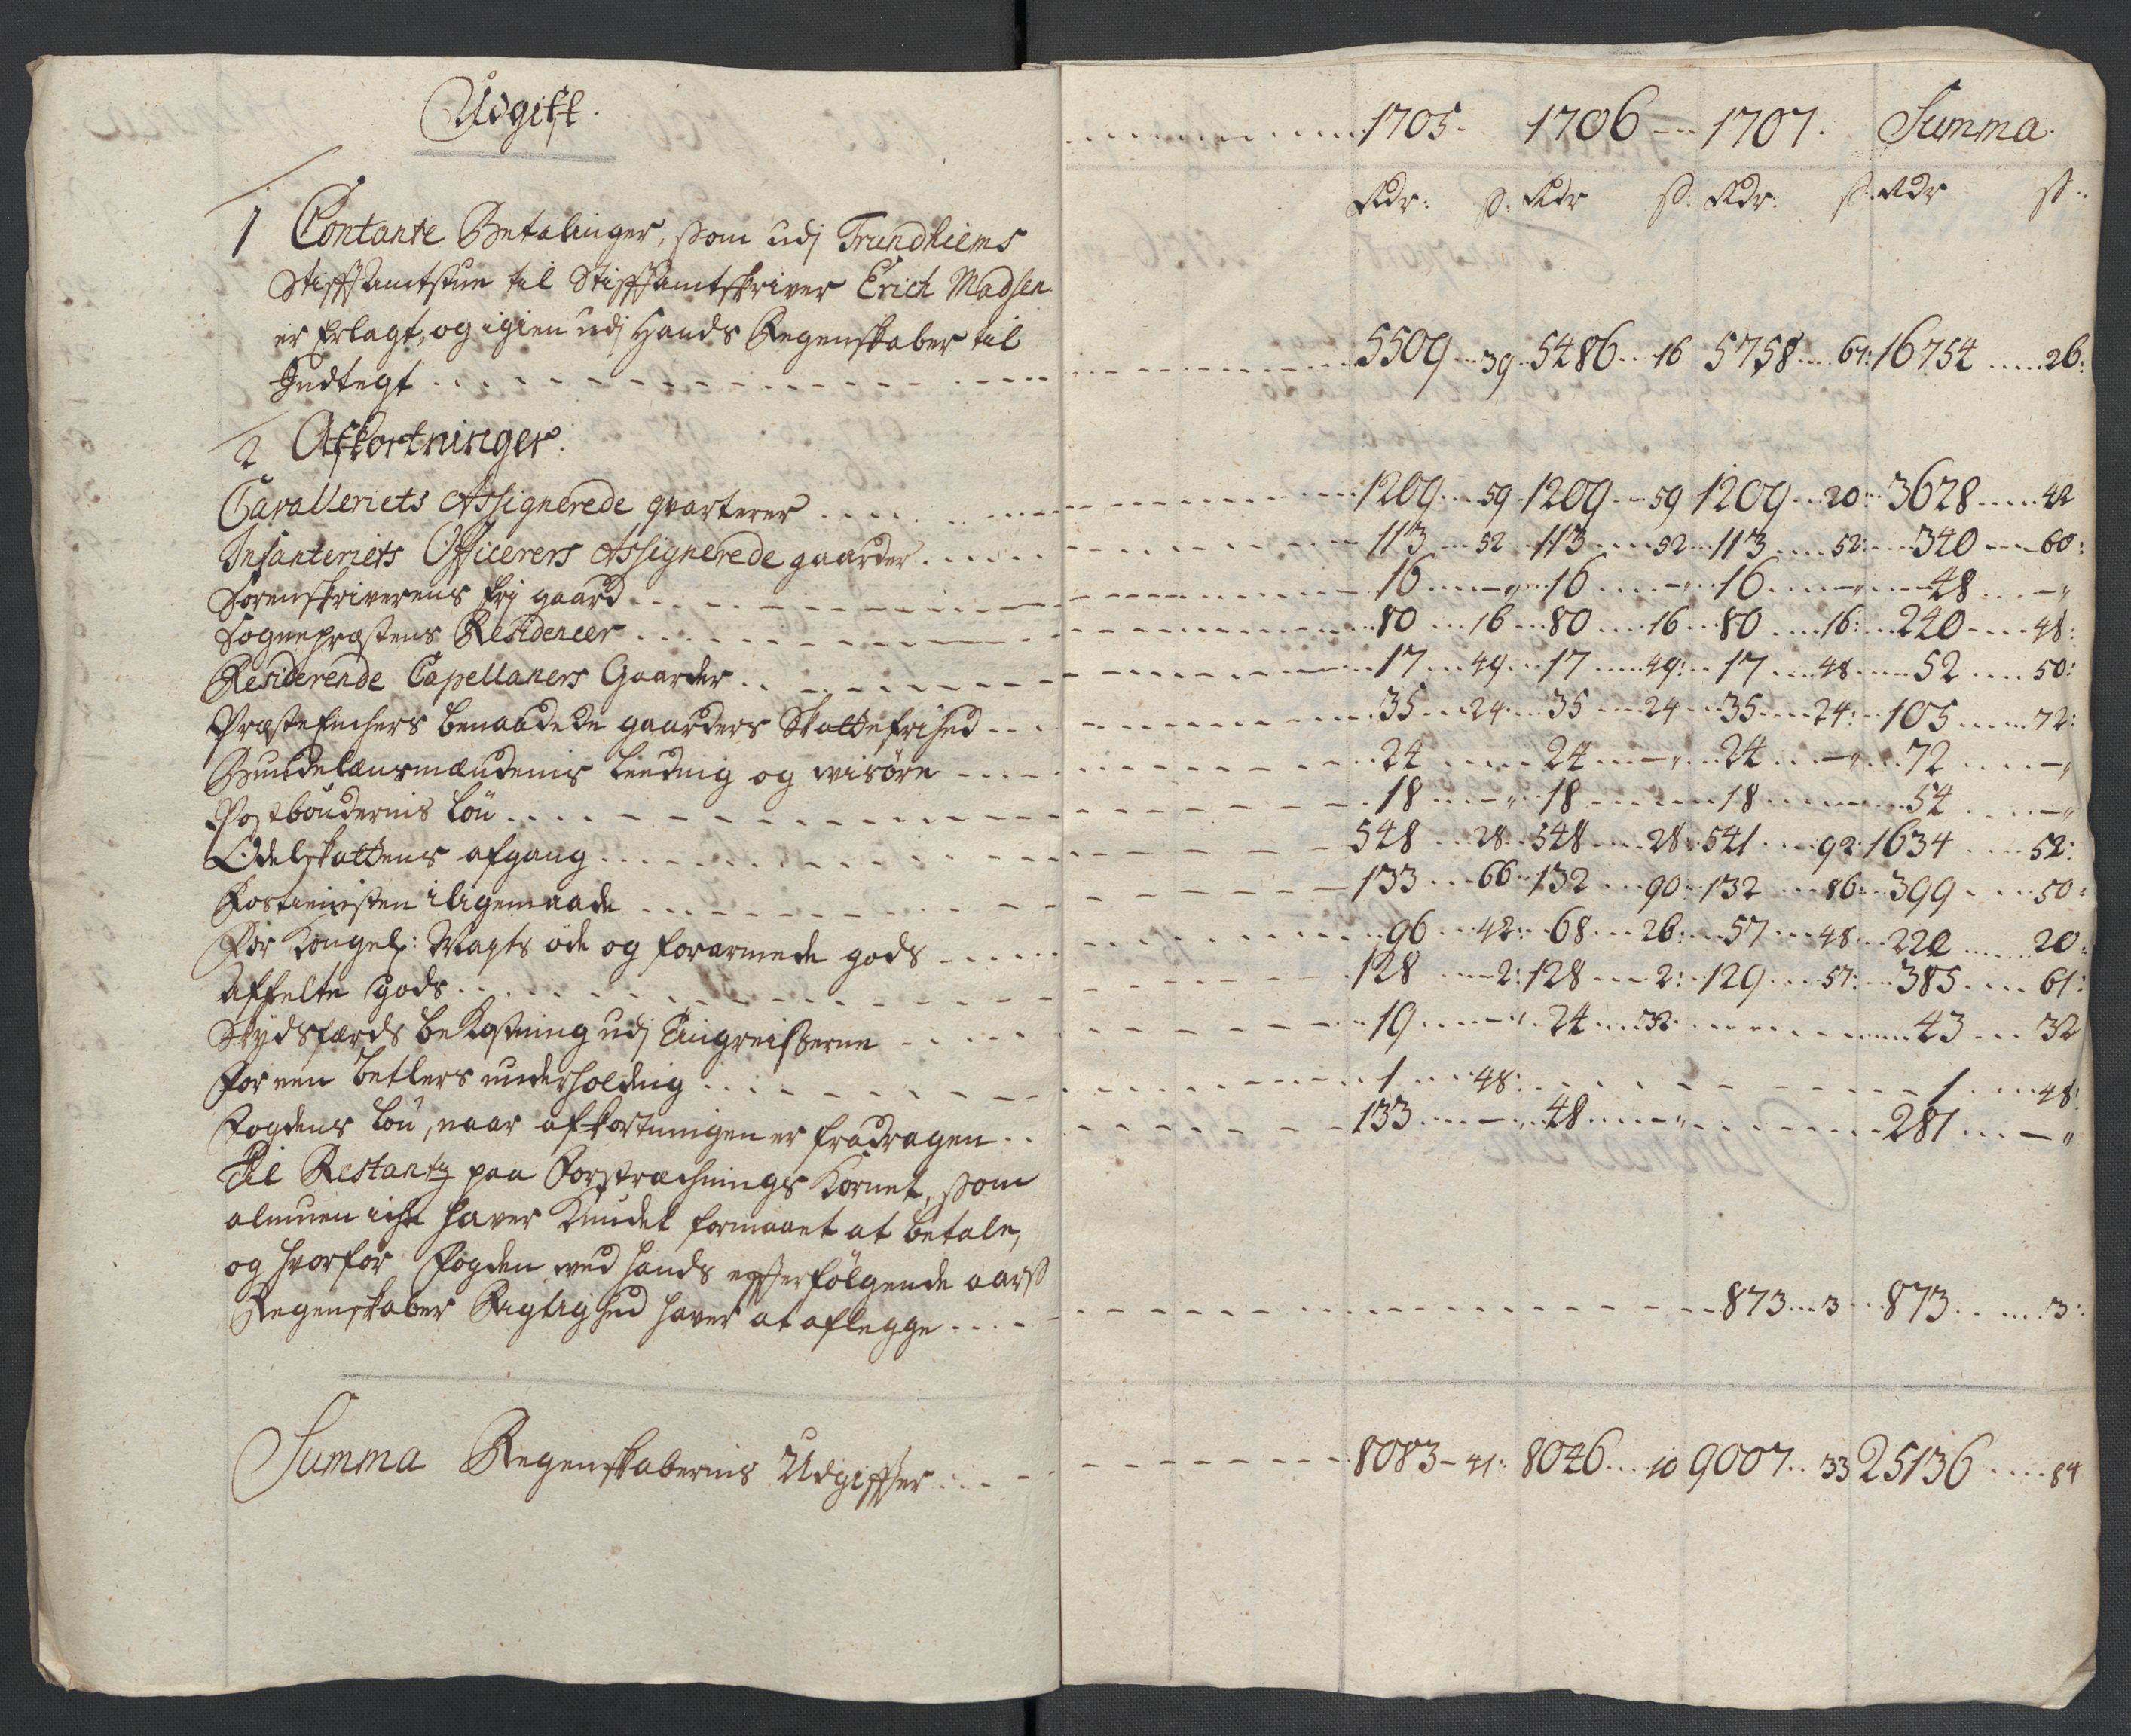 Udgift.
1705. 1706 1707. Summa.
Rdr: ß: Rdr ß: Rdr: ß: Rdr ß:
1 Contante Betalinger, som udj Trundhiems
Stifftamtstue til Stifftamtskriver Erich Madsen
er Erlagt, og igien udj Hands Regenskaber til
Indtegt 5509 39 5486 16 5758 67: 16754 26:
2 Afkortninger:
Cavalleriets Assignerede qvarterer 1209 59 1209 59 1209 20: 3628 42
Infanteriets Officerers Assignerede gaarder 113 52 113 52 113 52: 340 60:
Sorenskriverens frj gaard 16 – 16 – 16 – 48 –
Sognepræstens Residencer 80 16 80 16 80 16: 240 48:
Residerende Capellaners Gaarder 17 49 17 49: 17 48 52 50:
Præste Enchers benaadede gaarders Skattefrihed 35 24 35 24 35 24: 105 72:
Bundelænsmændenis leednig og wisöre 24 24 – 24 – 72 –
Postböndernis lön 18 – 18 18 54 –
Odelskattens afgang 548 28 548 28 541 92 1634 52:
Fostieniesten iligemaade 133 66 132 90 132 86: 399 50:
For Kongel: Mayts öde og forarmede gods 96 42: 68 26: 57 48 222 20:
Affelte gods 128 2: 128 2: 129 57: 385 61:
Skydsfærds bekostning udj Tingreiserne 19 – 24 32 43 32
For een betlers underholdnig 1 48: 1 48:
Fogdens lön, naar afkortningen er fradragen 133 – 48 – 281 –
Til Restantz paa Forstræchnings Kornet, som
almuen iche haver kundet formaaet at betale,
og hvorfor Fogden wed hands efterfölgende aarß
Regenskaber Rigtighed haver at aflegge 873 3 873 3:
Summa Regenskabernis Udgiffter 8083 41: 8046 10 9007 33 25136 84